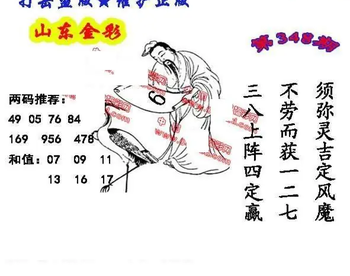 打击盗版责维护正版
山东金彩
第348期
两码推荐:
49 05 76 84
169 956 478
和值: 07 09 11
13 16 17
6
须弥灵吉定风魔
不劳而获一二七
三八上阵四定赢